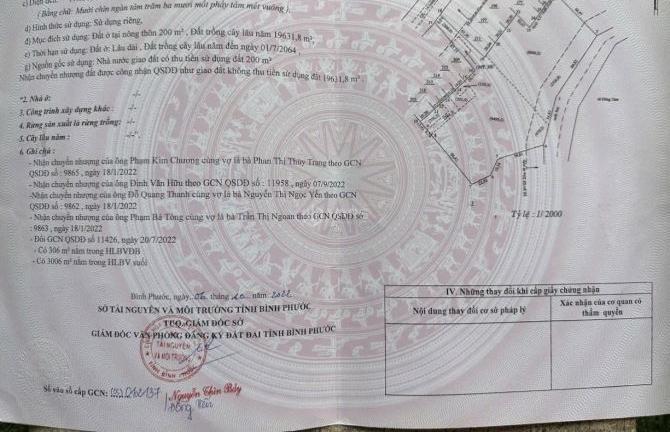 ( Bằng chữ: Mười chín ngàn tám trăm ba mươi mốt phẩy tám mét vuông ).
d) Hình thức sử dụng: Sử dụng riêng,
đ) Mục đích sử dụng: Đất ở tại nông thôn 200 m², Đất trồng cây lâu năm 19631,8 m²,
e) Thời hạn sử dụng: Đất ở: Lâu dài, Đất trồng cây lâu năm đến ngày 01/7/2064,
g) Nguồn gốc sử dụng: Nhà nước giao đất có thu tiền sử dụng đất 200 m²
Nhận chuyển nhượng đất được công nhận QSDĐ như giao đất không thu tiền sử dụng đất 19631,8 m².
*2. Nhà ở: -/-
3. Công trình xây dựng khác : -/-
4. Rừng sản xuất là rừng trồng: -/-
5. Cây lâu năm : -/-
6. Ghi chú :
- Nhận chuyển nhượng của ông Phạm Kim Chương cùng vợ là bà Phan Thị Thùy Trang theo GCN
QSDĐ số : 9865 , ngày 18/1/2022
- Nhận chuyển nhượng của ông Đinh Văn Hữu theo GCN QSDĐ số : 11958 , ngày 07/9/2022
- Nhận chuyển nhượng của ông Đỗ Quang Thanh cùng vợ là bà Nguyễn Thị Ngọc Yến theo GCN
QSDĐ số : 9862 , ngày 18/1/2022
- Nhận chuyển nhượng của ông Phạm Bá Tòng cùng vợ là bà Trần Thị Ngoan theo GCN QSDĐ số
: 9863 , ngày 18/1/2022
- Đổi GCN QSDĐ số 11426, ngày 20/7/2022
- Có 306 m² nằm trong HLBVĐB
- Có 3006 m² nằm trong HLBV suối
Tỷ lệ : 1/ 2000
Bình Phước, ngày 06 tháng 10 năm 2022
SỞ TÀI NGUYÊN VÀ MÔI TRƯỜNG TỈNH BÌNH PHƯỚC
TUQ. GIÁM ĐỐC SỞ
GIÁM ĐỐC VĂN PHÒNG ĐĂNG KÝ ĐẤT ĐAI TỈNH BÌNH PHƯỚC
TÀI NGUYÊN
VÀ MÔI TRƯỜNG
TỈNH BÌNH PHƯỚC
Số vào sổ cấp GCN:
Nguyễn Thìn Bảy
IV. Những thay đổi khi cấp giấy chứng nhận
Nội dung thay đổi cơ sở pháp lý
Xác nhận của cơ quan có
thẩm quyền